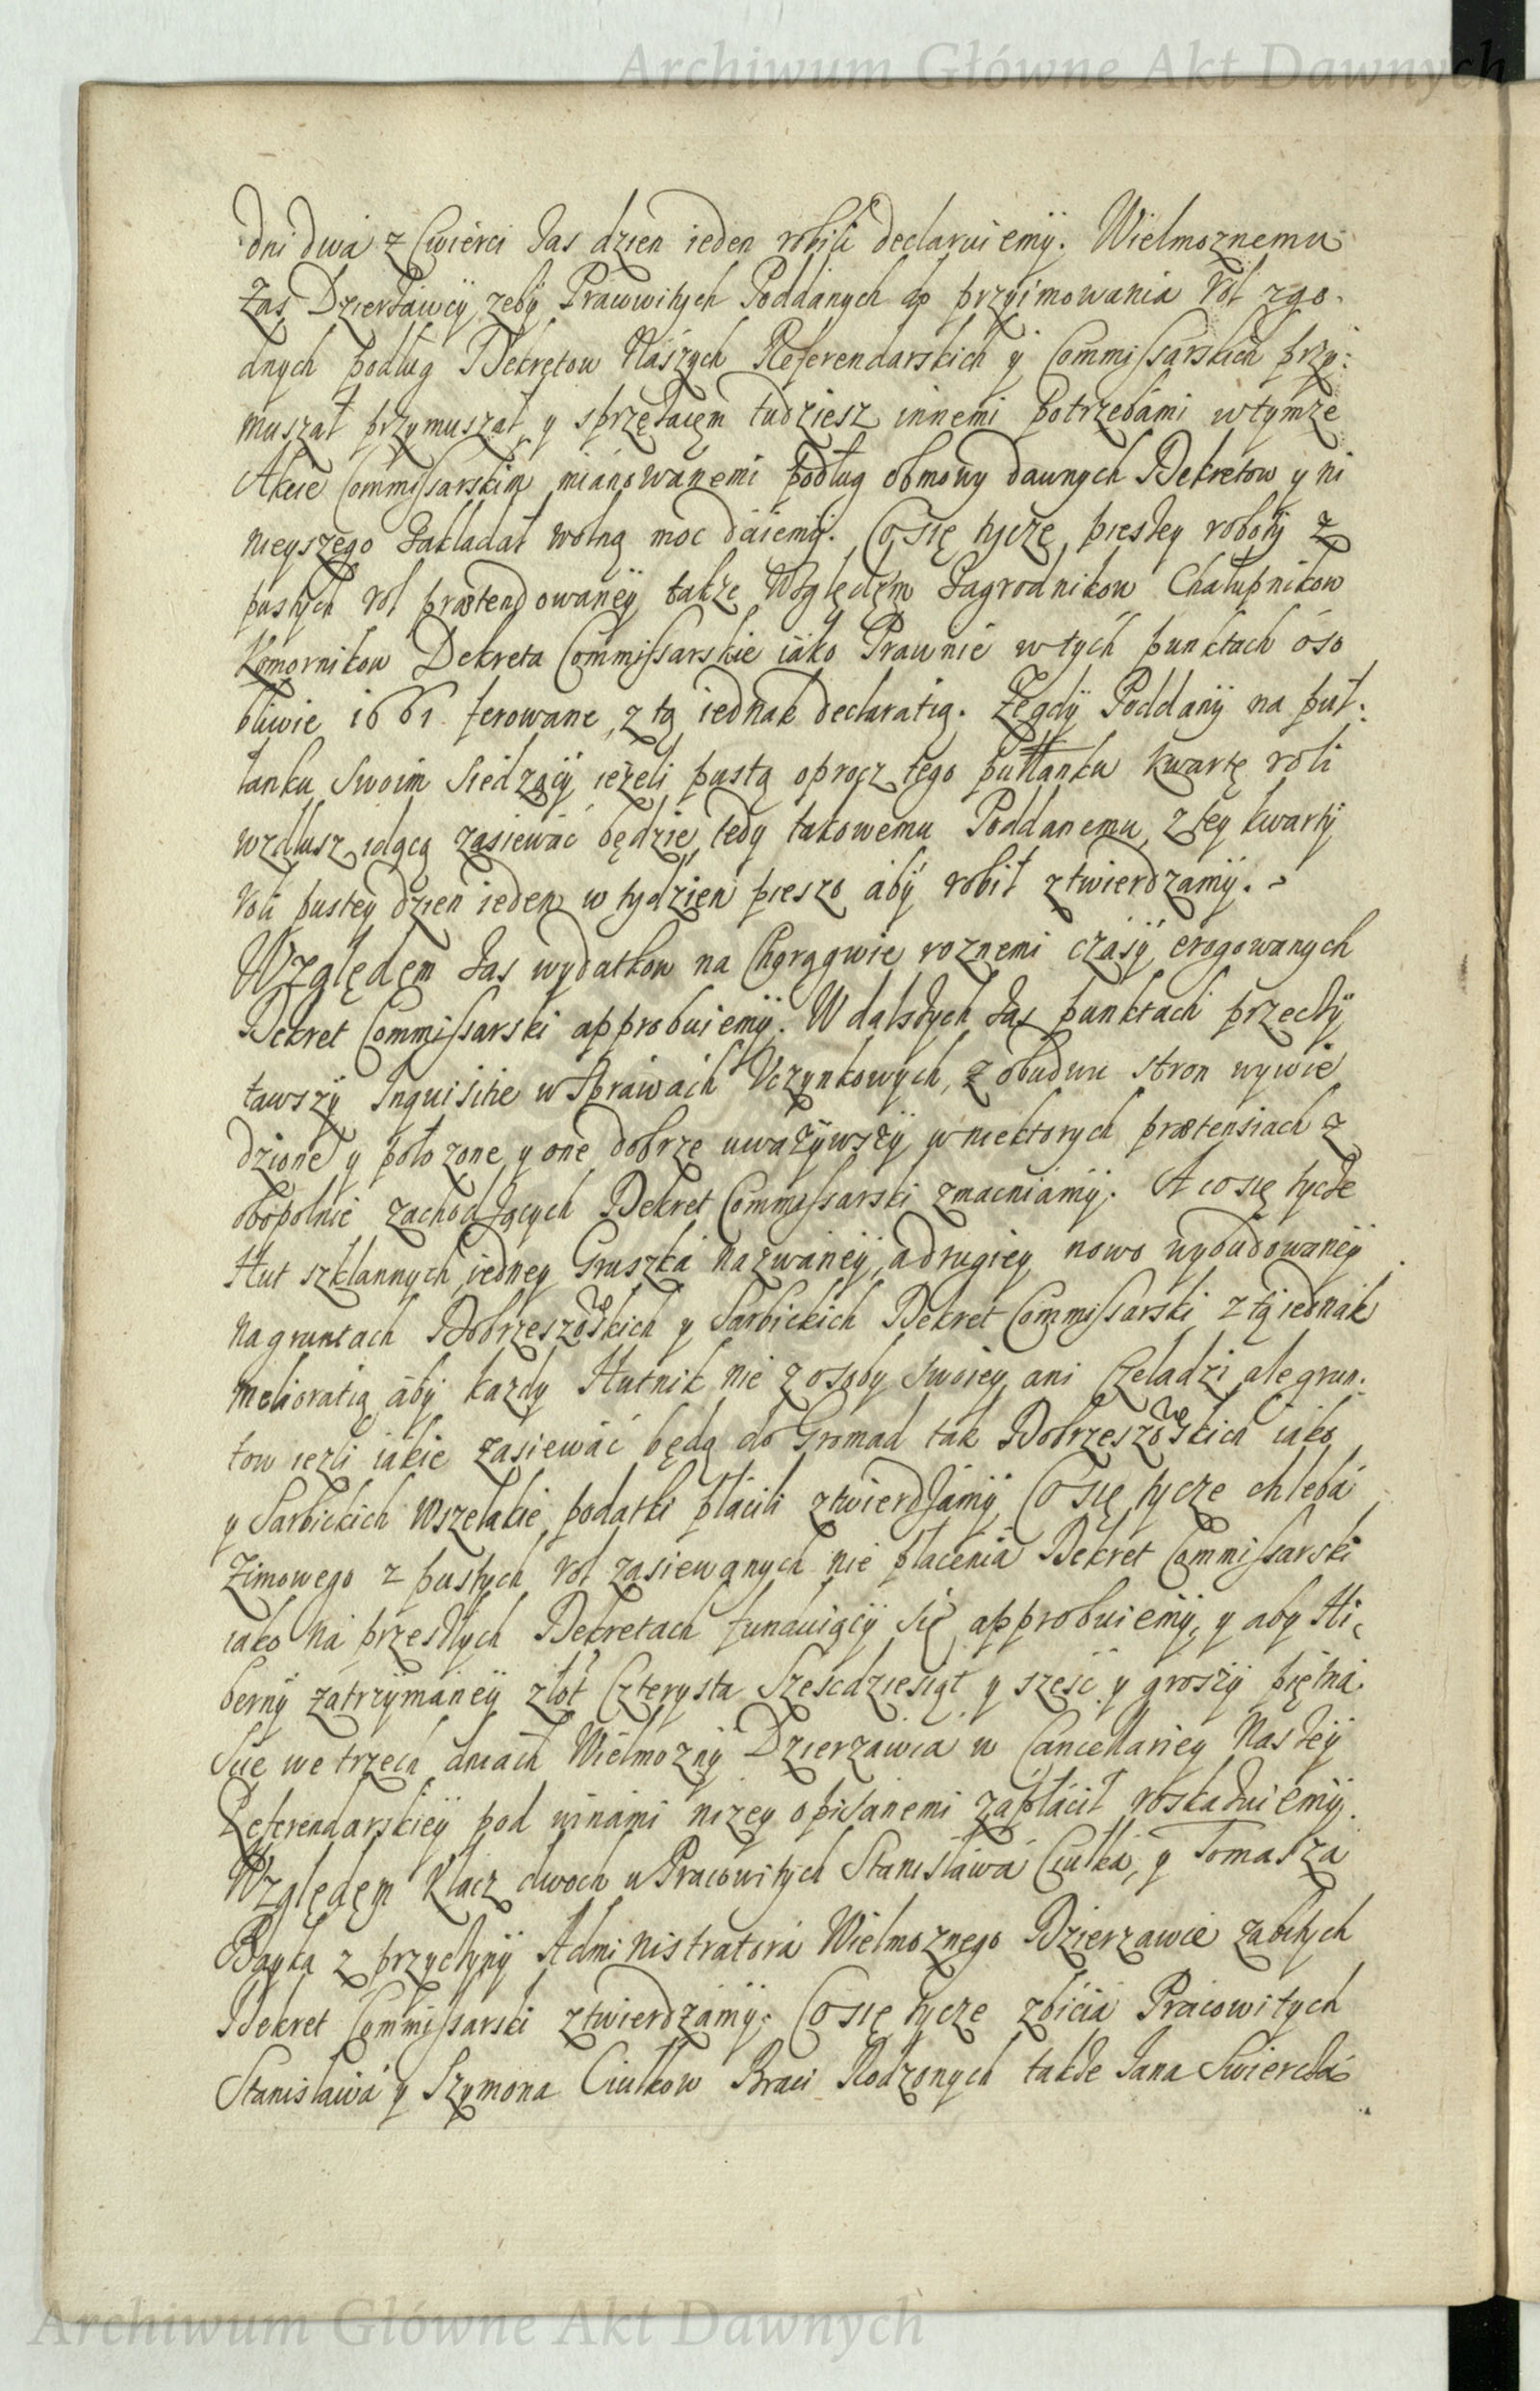 Archiwum Główne Akt Dawnych
dni dwa z Cwierci zas dzien ieden robili declaruiemy. Wielmoznemu
zas Dzierzawcy zeby Pracowitych Poddanych do przyimowania rol zgo-
dnych podług Dekretow Naszych Referendarskich y Commissarskich przy:
muszał przymuszał y sprzężaięm tudziesz innemi potrzebami w tymze
Akcie Commissarskim mianowanemi podług obmowy dawnych Dekretow y ni
nieyszego zakładał wolną moc daiemy. Co się tycze pieszey roboty z
pustych rol prætendowaney także Względem Zagrodnikow Chałupnikow
Komornikow Dekreta Commissarskie iako Prawnie w tych punktach oso
bliwie 1661 ferowane z tą iednak declaratią. Ze gdy Poddany na puł:
łanku swoim siedzący ieżeli pustą oprocz tego pułłanku kwartę roli
wzdłusz idącą zasiewać będzie tedy takowemu Poddanemu z tey kwarty
roli pustey dzien ieden w tydzien pieszo aby robił ztwierdzamy.
Względem zas wydatkow na Chorągwie roznemi czasy erogowanych
Dekret Commissarski approbuiemy. W dalszych zas punktach przeczy
tawszy Inquisitie w Sprawach Uczynkowych, z obudwu stron wywie
dzione y położone y one dobrze uważywszy w niektorych prætensiach z
obopolnie zachodzących Dekret Commissarski zmacniamy. A co się tycze
Hut szklannych iedney Gruszka nazwaney, a drugiey nowo wybudowaney
na gruntach Dobrzeszowskich y Sarbickich Dekret Commissarski z tą iednak
melioratią aby kazdy Hutnik nie z osoby swoiey ani Czeladzi ale grun:
tow iezli iakie zasiewać będą do Gromad tak Dobrzeszowskich iako
y Sarbickich wszelakie podatki płacili ztwierdzamy Co się tycze chleba
Zimowego z pustych rol zasiewanych nie płacenia Dekret Commissarski
iako na przeszłych Dekretach funduiący się approbuiemy, y aby Hi:
berny zatrzymaney złot Czterysta Sześcdziesiąt y sześć y groszy piętna:
scie we trzech dniach Wielmozny Dzierzawca w Cancellariey Naszey
Referendarskiey pod winami nizey opisanemi zapłacił roskazuiemy.
Względem Klacz dwoch u Pracowitych Stanisława Ciulka, y Tomasza
Bayka z przyczyny Administratora Wielmoznego Dzierzawce zabitych
Dekret Commissarski ztwierdzamy; Co się tycze zbicia Pracowitych
Stanisława y Szymona Ciulkow Braci Rodzonych takze Jana Swiercza
Archiwum Główne Akt Dawnych